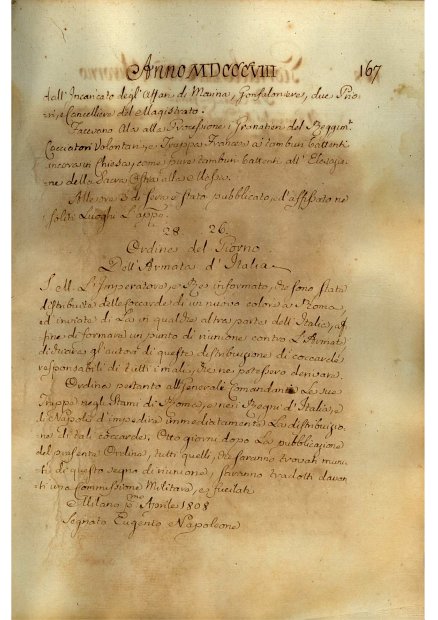 Anno MDCCCVIII 167
dell'Incaricato degl'Affari di Marina, Gonfaloniere, due Prio=
ri, e Cancelliere del Magistrato.
Facevano Ala alla Processione i Granatieri del Reggim.
Cacciatori Volontari, e Truppa Francese a' tamburi battenti
ancora in Chiesa, come pure tamburi battenti all'Elevazio=
ne della Sacra Ostia alla Messa.
Alle ore 3 di sera è stato pubblicato, ed affissato ne'
soliti Luoghi
28 26.
Ordine del Giorno
Dell'Armata d'Italia
S. M. L'Imperatore, e Re informato, che sono state
distribuite delle coccarde di un nuovo colore a Roma,
ed inviate di La in qualche altra parte dell'Italia, af=
fine di formare un punto di riunione contro L'Armata,
dichiara gl'autori di queste distribuzione di coccarde
responsabili di tutti i mali, che ne potessero derivare.
Ordina pertanto all Generale Comandante Le sue
Truppe negli Stati di Roma, e nei Regni d'Italia, e
di Napoli d'impedire immediatamente La distribuzio=
ne di tali coccarde; Otto giorni dopo La pubblicazione
del presente Ordine, tutti quelli, che saranno trovati muni=
ti di questo segno di riunione, saranno tradotti davan=
ti una Commissione Militare, e fucilati
Milano p.mo Aprile 1808
Segnato Eugenio Napoleone